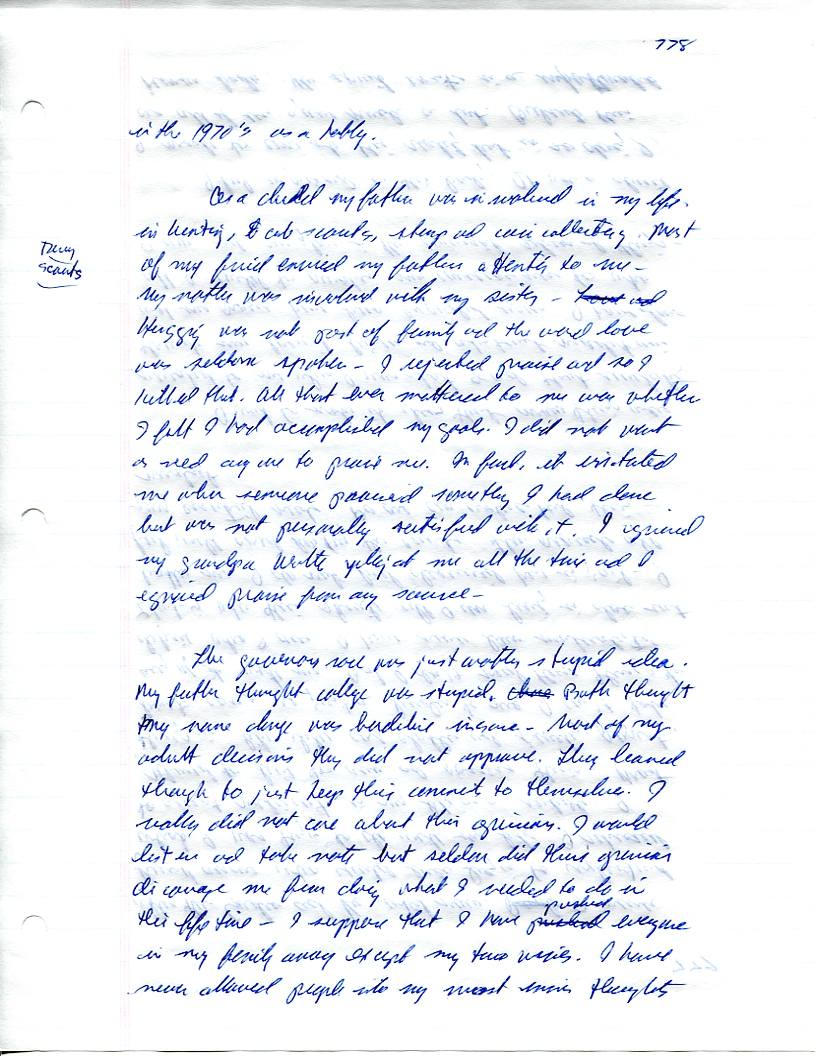 778
in the 1970's as a hobby.
As a child my father was involved in my life.
in hunting, cub scouts, stamp ad coin collecting. Most
Deny
scouts
of my friend envied my fathers attentis to me -
My mother was involved with my sister -
Hugging was not part of family ad the word love
was seldom spoken - I rejected praise ad so I
killed that. All that ever mattered to me was whether
I felt I had accomplished my goals. I did not want
or need anyone to praise me. In fact, it irritated
me when someone praised something I had done
but was not personally satisfied with it. I ignored
my grandpa yelling at me all the time ad I
ignored praise from any source -
The governors race was just another stupid idea.
My father thought college was stupid. Both thought
my name change was borderline insane - Most of my
adult decisions they did not approve. They learned
though to just keep their comments to themselves. I
really did not care about their opinions. I would
listen ad take note but seldom did their opinion
discourage me from doing what I needed to do in
this life time - I suppose that I have pushed everyone
in my family away except my two nieces. I have
never allowed people into my most inner thoughts